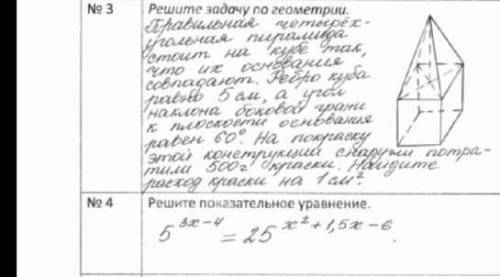 № 3
Решите задачу по геометрии.
Правильная четырёх-
угольная пирамида
стоит на кубе так,
что их основания
совпадают. Ребро куба
равно 5 см, а угол
наклона боковой грани
к плоскости основания
равен 60°. На покраску
этой конструкции снаружи потра-
тили 500г краски. Найдите
расход краски на 1 см².
№ 4
Решите показательное уравнение.
5^{3x-4} = 25^{x^2+1,5x-6}.